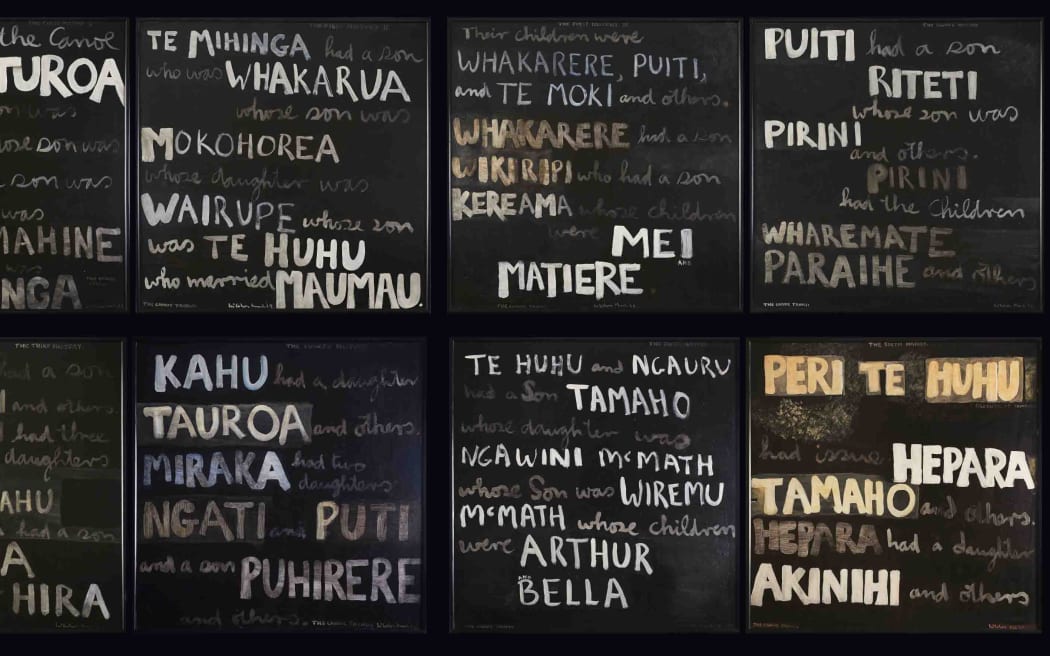 the Canoe
TUROA
son was
whose son was
son was
was
MAHINE
was
NGA
THE FIRST HISTORY II
TE MIHINGA had a son
who was WHAKARUA
whose son was
MOKOHOREA
whose daughter was
WAIRUPE whose son
was TE HUHU
who married MAUMAU.
THE CANOE TAINUI
THE FIRST HISTORY III
Their children were
WHAKARERE, PUITI,
and TE MOKI and others.
WHAKARERE had a son
WIKIRIPI who had a son
KEREAMA whose children
were MEI
AND
MATIERE.
THE CANOE TAINUI
PUITI had a son
RITETI
whose son was
PIRINI
and others.
PIRINI
had the Children
WHAREMATE
PARAIHE and others
THE CANOE TAINUI
THE THIRD HISTORY
had a son
and others.
had three
daughters
AHU
had a son
A
HIRA
THE FOURTH HISTORY
KAHU had a daughter
TAUROA and others.
MIRAKA had two
daughters
NGATI and PUTI
and a son PUHIRERE
and others. THE CANOE TAINUI
TE HUHU and NGAURU
had a Son TAMAHO
whose daughter was
NGAWINI McMATH
whose Son was WIREMU
McMATH whose children
were ARTHUR
AND
BELLA
PERI TE HUHU
had issue HEPARA
TAMAHO and others.
HEPARA had a daughter
AKINIHI and others